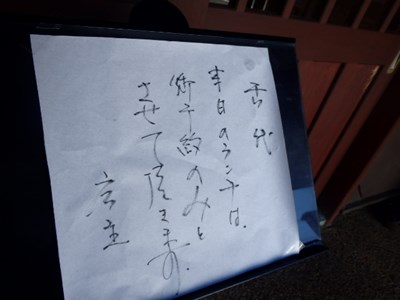 本日のランチは、
御予約のみと
させて頂きます。
店主